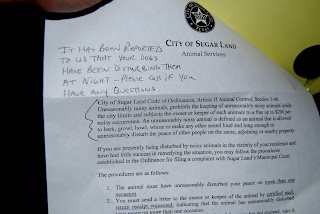 IT HAS BEEN REPORTED
TO US THAT YOUR DOGS
HAVE BEEN DISTURBING THEM
AT NIGHT - PLEASE CALL IF YOU
HAVE ANY QUESTIONS.
CITY OF SUGAR LAND
Animal Services
City of Sugar Land Code of Ordinances, Article II Animal Control, Section
Unreasonably noisy animals, prohibits the keeping of unreasonably noisy animals inside
the city limits and subjects the owner or keeper of such animals to a fine up to $200 per
noisy occurrence. An unreasonably noisy animal is defined as an animal that is allowed
to bark, growl, howl, whine or make any other sound loud and long enough to
unreasonably disturb the peace of other people on the same, adjoining or nearby property.
If you are presently being disturbed by noisy animals in the vicinity of your residence and
have had little success in remedying the situation, you may follow the procedures
established in the Ordinance for filing a complaint with Sugar Land's Municipal Court.
The procedures are as follows:
1. The animal must have unreasonably disturbed your peace on more than one
occasion.
2. You must send a letter to the owner or keeper of the animal by certified mail,
return receipt requested, indicating that the animal has unreasonably disturbed
your peace on more than one occasion.